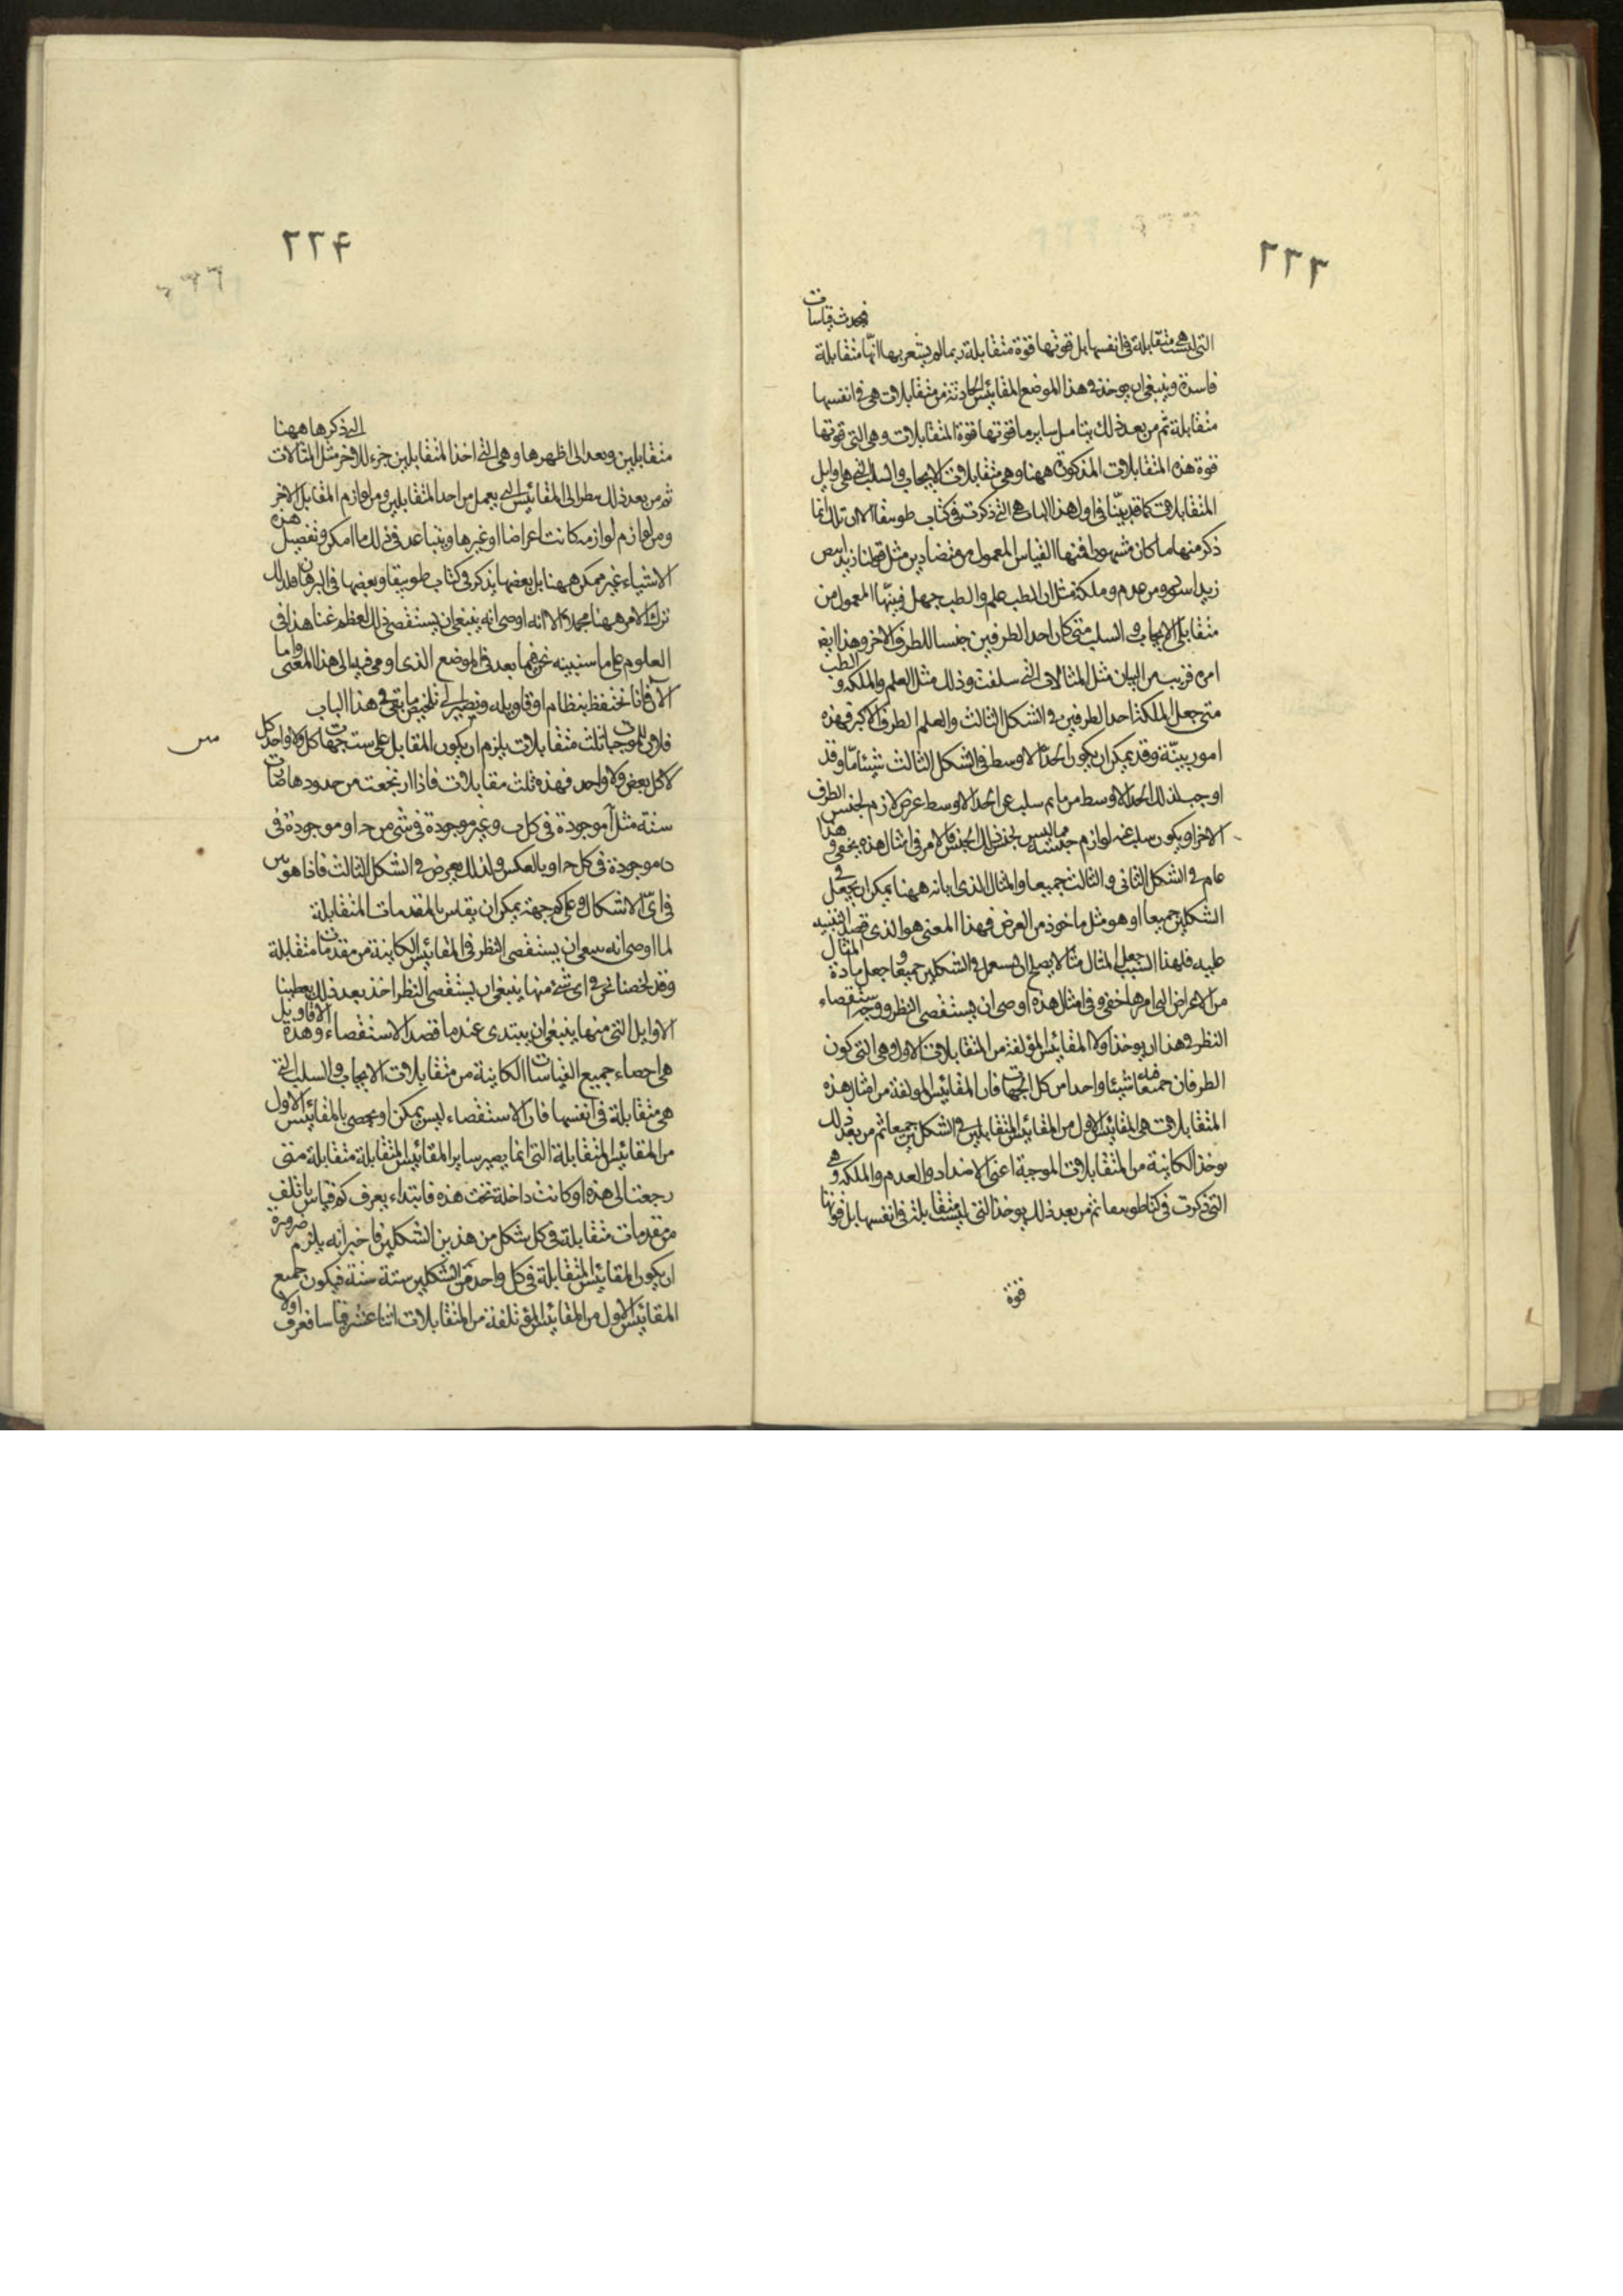 ٢٢٣
فيحدث قياسات
التى ليست هى متقابلة فى انفسها بل قوتها قوة متقابلة ربما لم يشعر بها انها متقابلة
فاسدة وينبغى ان يوخذ فى هذا الموضع المقائيس الحادثة من متقابلات هى فى انفسها
متقابلة ثم من بعد ذلك يتامل ساير ما قوتها قوة المتقابلات وهى التى قوتها
قوة هذه المتقابلات المذكورة ههنا وهى متقابلات الايجاب والسلب التى هى اوايل
المتقابلات كما قد بيّنا فى اول هذا الباب هى التى ذكرت فى كتاب طوبيقا الا ان تلك انما
ذكر منها ما كان مشهورا فمنها القياس المعمول من متضادين مثل قولنا زيد ابيض
زيد اسود ومن عدم وملكة مثل ان الطب علم والطب جهل فبيّنها المعمول من
متقابلى الايجاب والسلب متى كان احد الطرفين جنسا للطرف الاخر وهذا ايضا
امره قريب من البيان مثل المثالات التى سلفت وذلك مثل العلم والملكة والطب
متى جعل الملكة احد الطرفين فى الشكل الثالث والعلم الطرف الاكبر فهذه
امور بيّنة وقد يمكن ان يكون الحد الاوسط فى الشكل الثالث شيئا ما وقد
اوجب لذلك الحد الاوسط امر ما ثم سلب عن الحد الاوسط عرض لازم لجنس الطرف
الاخر او يكون سلب عنه لوازم جنسه مما ليس لجنس ذلك الجنس فالامر فى امثال هذه يخفى وهذا
عام فى الشكل الثانى والثالث جميعا والمثال الذى ابانه ههنا يمكن ان يجعل فى
الشكلين جميعا او هو مثل ماخوذ من العرض فهذا المعنى هو الذى قصد التنبيه
عليه فلهذا السبب جعل المثال مثالا يصلح ان يستعمل فى الشكلين جميعا وجعل مادة المثال
من الاعراض التى امرها خفى وفى امثال هذه اوصى ان يستقصى النظر ووجه استقصاء
النظر فى هذا ان يوخذ اولا المقائيس المؤلفة من المتقابلات الاول وهى التى تكون
الطرفان جميعا فيه شيئا واحدا من كل الجهات فان المقائيس المولفة من امثال هذه
المتقابلات هى المقائيس الاول من المقائيس المتقابلين فى الشكلين جميعا ثم من بعد ذلك
يوخذ الكاينة من المتقابلات الموجبة اعنى الاضداد والعدم والملكة وهى
التى ذكرت فى كتاب طوبيقا ثم من بعد ذلك يوخذ التى ليست متقابلة فى انفسها بل قوتها
قوة
٢٢٤
التى ذكرها ههنا
متقابلين وبعد التى اظهرها وهى التى اخذ المتقابلين جزء للاخر مثل المثالات
ثم من بعد ذلك ينظر الى المقائيس التى يعمل من احد المتقابلين ومن لوازم المقابل الاخر
ومن لوازم لوازمه كانت اعراضا او غيرها ويتباعد فى ذلك ما امكن وتفصيل هذه
الاشياء غير ممكن ههنا بل بعضها يذكر فى كتاب طوبيقا وبعضها فى البرهان فلذلك
ترك الامر ههنا مجملا الا انه اوصى انه ينبغى ان يستقصى ذلك لعظم غنا هذا فى
العلوم على ما سنبينه نحن فيما بعد فى الموضع الذى اومى فيه الى هذا المعنى واما
الآن فانا نحتفظ بنظام اقاويله ونصير الى تلخيص ما بقى فى هذا الباب
فلان الموجبات ثلث متقابلات يلزم ان يكون المقابل على ست جهات كل ولا واحد كل
لا كل بعض ولا واحد فهذه ثلث مقابلات فاذا ارتجعت من حدودها صارت
ستة مثل آ موجودة فى كل ب وغير موجودة فى شى من حـ او موجودة فى
موجودة فى كل حـ او بالعكس وكذلك يعرض فى الشكل الثالث فاذا هو بين
فى اىّ الاشكال وعلى كم جهة يمكن ان يقاس بالمقدمات المتقابلة
لما اوصى انه ينبغى ان يستقصى النظر فى المقائيس الكاينة من مقدمات متقابلة
وقد لخصنا نحن فى اى شى منها ينبغى ان يستقصى النظر اخذ بعد ذلك يعطينا
الاوايل التى منها ينبغى ان يبتدى عند ما قصد الاستقصاء وهذه الاقاويل
هى احصاء جميع القياسات الكاينة من متقابلات الايجاب والسلب التى
هى متقابلة فى انفسها فان الاستقصاء ليس يمكن او يحصى بالمقائيس الاول
من المقائيس المتقابلة التى انما يصير ساير المقائيس المتقابلة متقابلة متى
رجعت الى هذه او كانت داخلة تحت هذه فابتداء يعرف كم قياس ياتلف
من مقدمات متقابلة فى كل شكل من هذين الشكلين فاخبر انه يلزم ضرورة
ان يكون المقائيس المتقابلة فى كل واحد من الشكلين ستة ستة فيكون جميع
المقائيس الاول من المقائيس المؤتلفة من المتقابلات اثنا عشر قياسا فعرف اولا